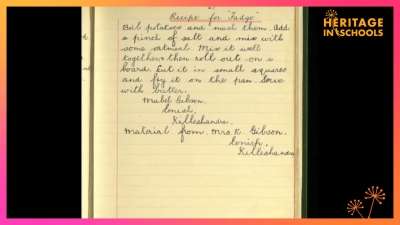 HERITAGE
IN SCHOOLS
Recipe for "Fadge"
Boil potatoes and mash them. Add
a pinch of salt and mix with
some oatmeal. Mix it well
together then roll out on a
board. Cut it in small squares
and fry it on the pan. Serve
with butter.
Mabel Gibson.
Killeshandra.
Material from Mrs. R. Gibson.
Killeshandra